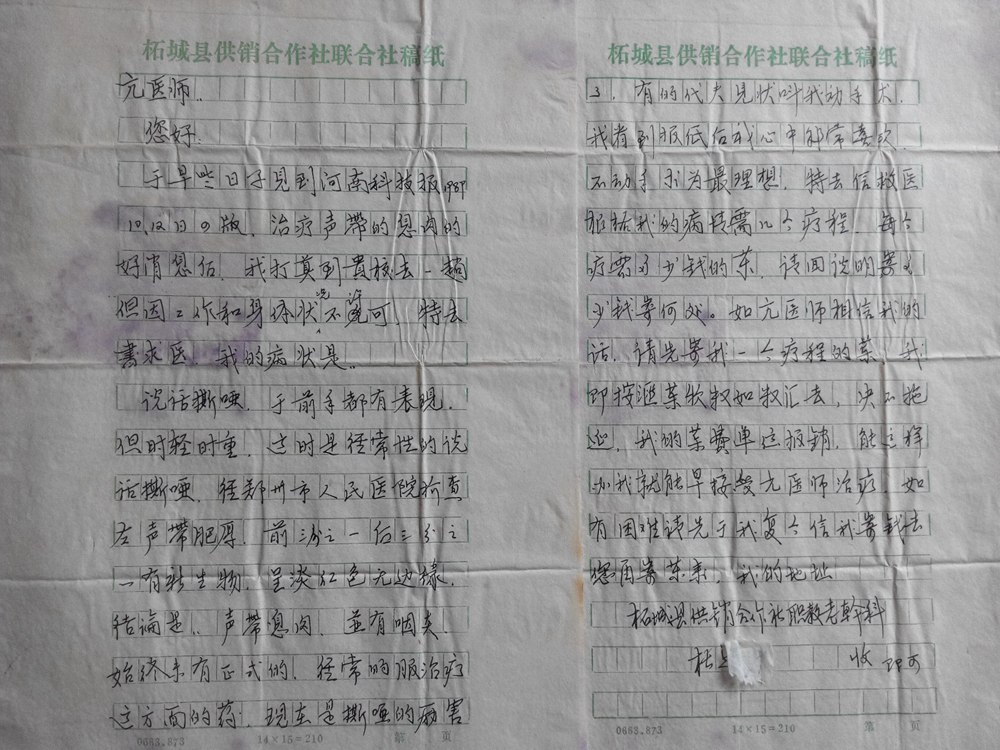 柘城县供销合作社联合社稿纸
亢医师..
您好:
于早些日子见到河南科技报1987
10.12日の版，治疗声带的息肉的
好消息后，我打算到贵校去一趟
但因工作和身体状况不许可，特去
書求医，我的病状是..
说话撕哑，于前年都有表现，
但时轻时重，这时是经常性的说
话撕哑，经郑州市人民医院检查
左声带肥厚，前三分之一后三分之
一有新生物，呈淡红色无边缘，
结論是..声帶息肉，並有咽炎，
始终未有正式的，经常的服治疗
这方面的药，现在是撕哑的厉害
0683.873 14×15=210 第 页
柘城县供销合作社联合社稿纸
了，有的代夫见状叫我动手术，
我看到报纸后我心中非常喜欢
不动手术为最理想！特去信救医
根据我的病情需几个疗程，每个
疗需多少钱的药，请回说明寄多
少钱寄何处。如亢医师相信我的
话，请先寄我一个疗程的药，我
即按滙药收权如数汇去，决不拖
延，我的药费单这报销，能这样
办我就能早接受亢医师治疗，如
有困难请先于我复个信我寄钱去
您再寄药来，我的地址
柘城县供销合作社职教老幹科
杜 收 即可
0683.873 14×15=210 第 页